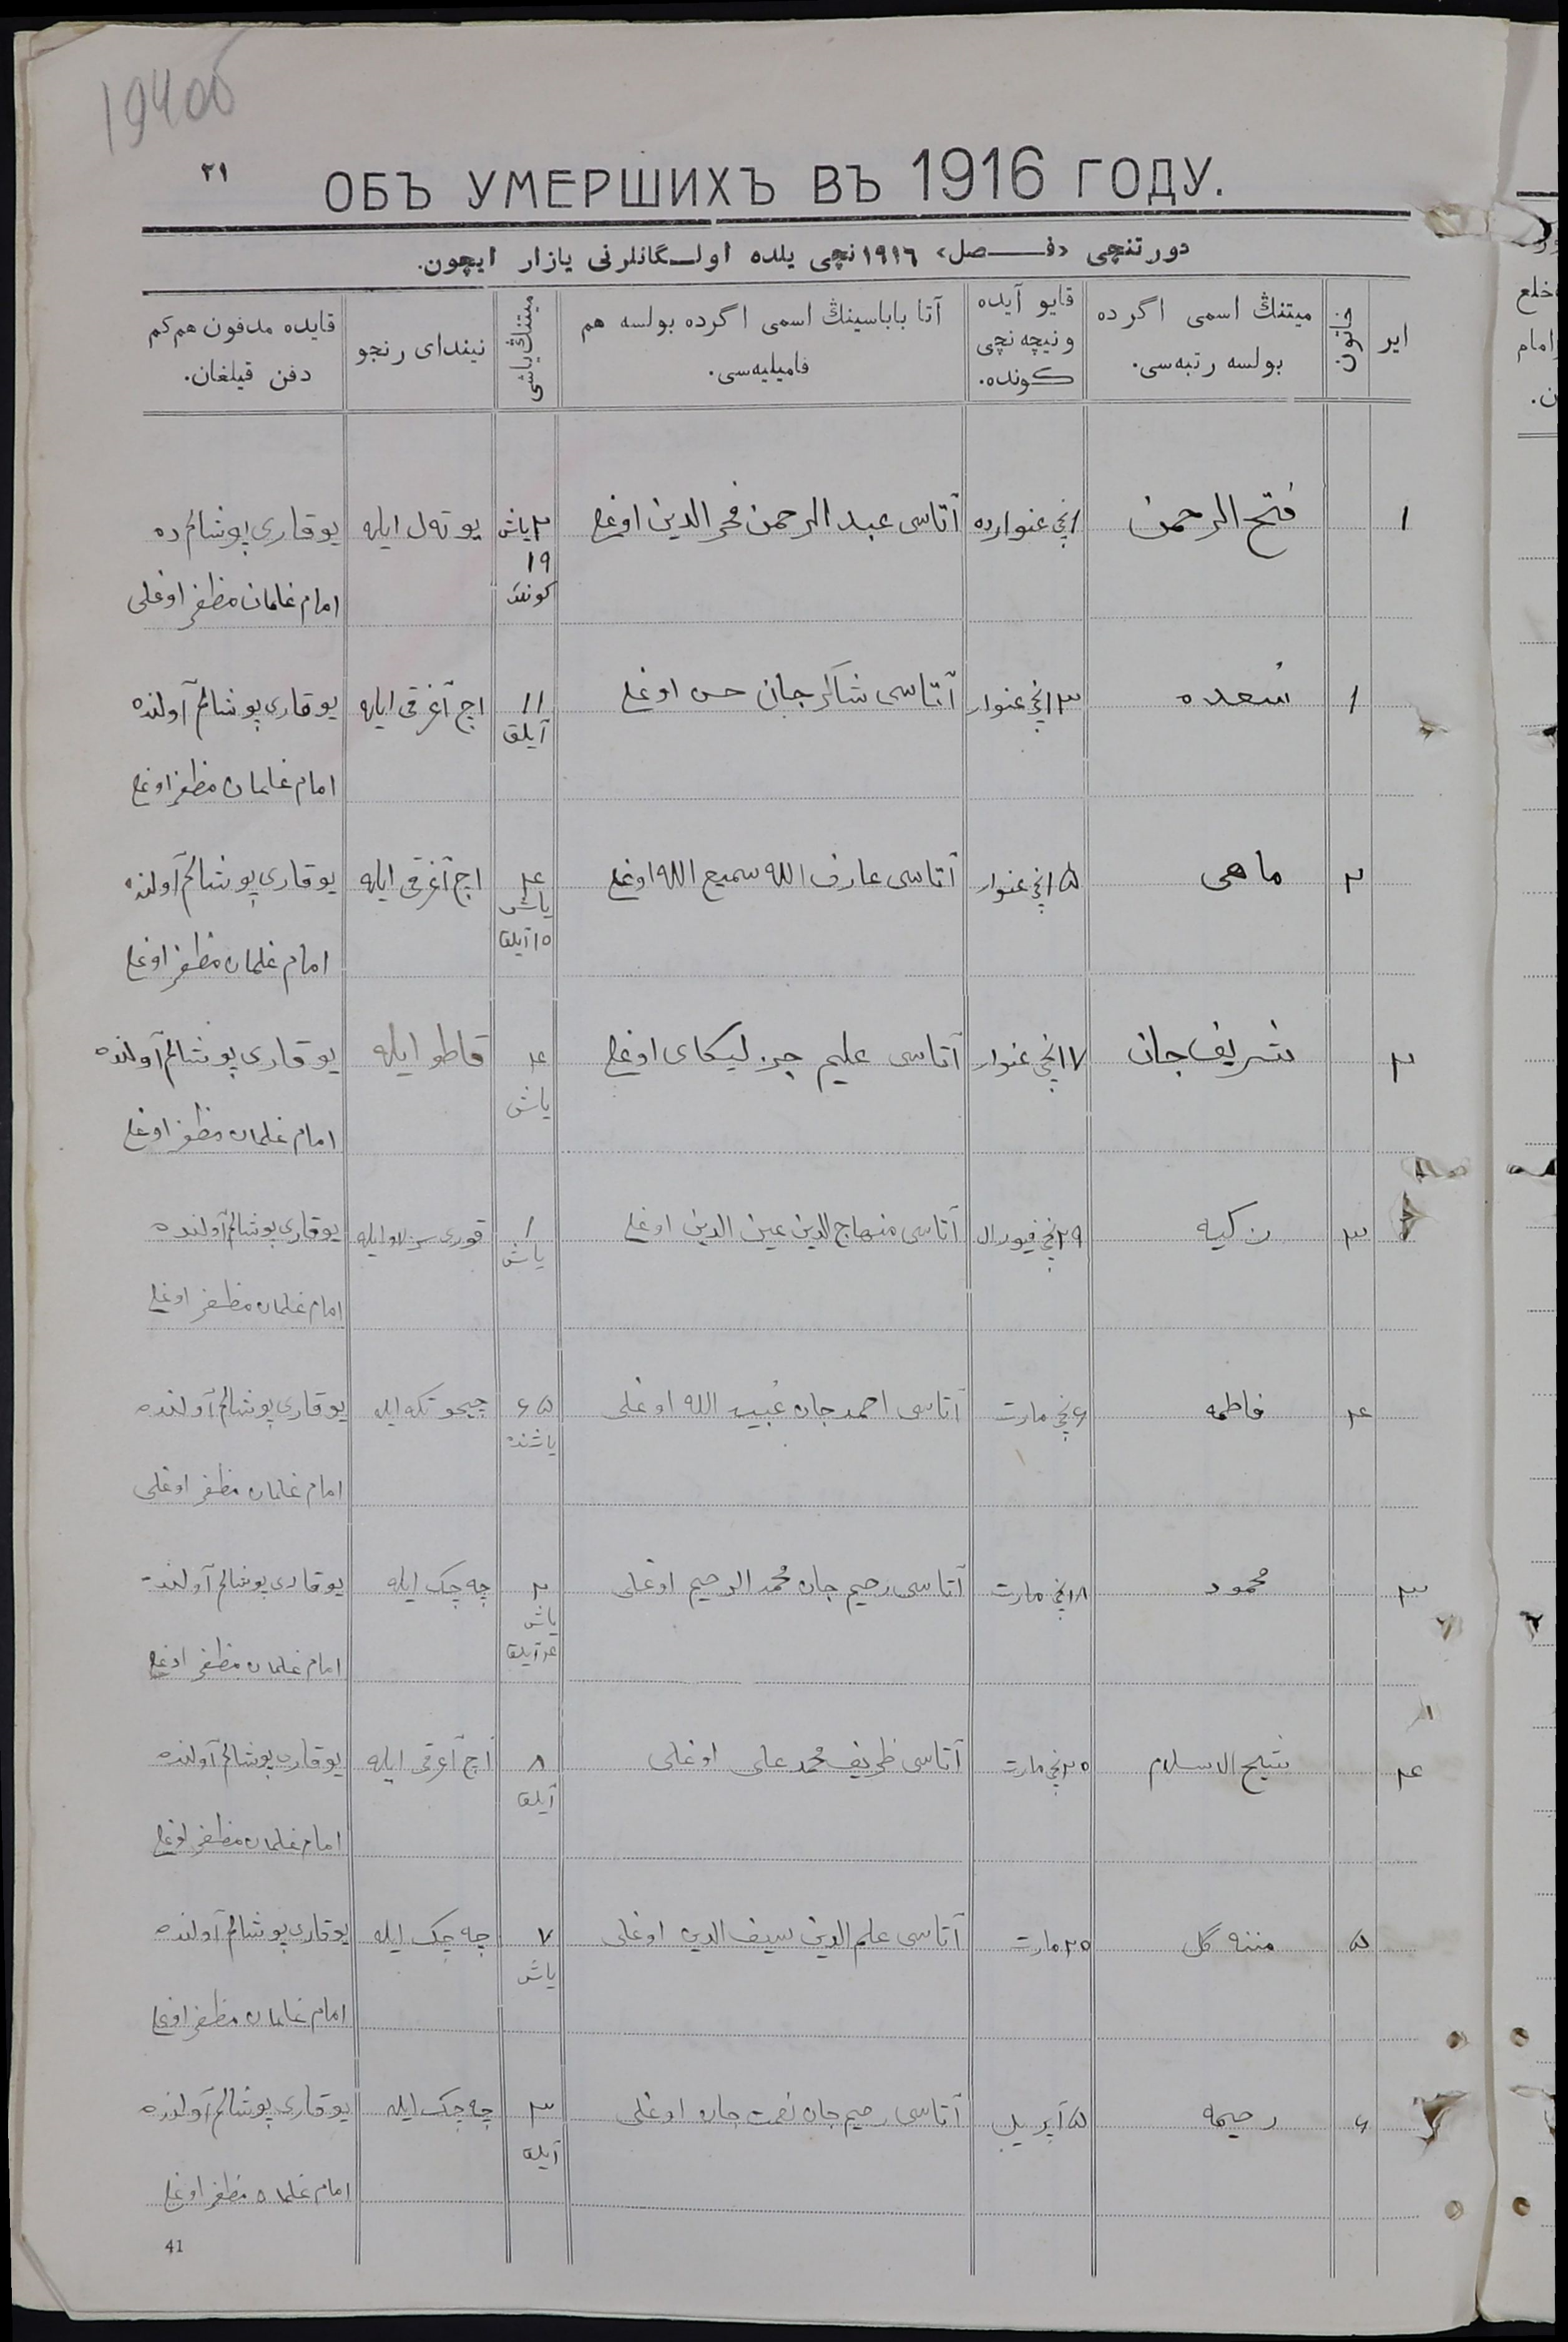 19400
٢١
ОБЪ УМЕРШИХЪ ВЪ 1916 ГОДУ.
دورتنچی «فـــصل» ١٩١٦ نچی یلده اولـگانلرنی یازار ایچون.
ایر
خاتون
میتنڭ اسمی اگرده بولسه رتبه‌سی.
قایو آیده ونیچه نچی كـونده.
آتا باباسینڭ اسمی اگرده بولسه هم فامیلیه‌سی.
میتنڭ یاشی
نیندای رنجو
قایده مدفون هم كم دفن قیلغان.
١ فتح الرحمن ١نچی غنوارده آتاسی عبد الرحمن فخر الدین اوغلی ٢ یاش ١٩ كونلك یوتەل ایله یوقاری پوشالم ده
امام غلمان مظفر اوغلی
١ سعده ١٣نچی غنوار آتاسی شاكرجان حسن اوغلی ١١ آیلق اچ آغرقی ایله یوقاری پوشالم آولنده
امام غلمان مظفر اوغلی
٢ ماهی ١٥نچی غنوار آتاسی عارف الله سمیع الله اوغلی ٤ یاش ١٥ آیلق اچ آغرقی ایله یوقاری پوشالم آولنده
امام غلمان مظفر اوغلی
٢ شریف جان ١٧نچی غنوار آتاسی علیم اوغلی ٤ یاش ایله یوقاری پوشالم آولنده
امام غلمان مظفر اوغلی
٣ زكیه ٢٩نچی فیورال آتاسی منهاج الدین عین الدین اوغلی ١ یاش قوری ایله یوقاری پوشالم آولنده
امام غلمان مظفر اوغلی
٤ فاطمه ٦نچی مارت آتاسی احمدجان عبید الله اوغلی ٦٥ یاشنده یوقاری پوشالم آولنده
امام غلمان مظفر اوغلی
٣ محمود ١٨نچی مارت آتاسی رحیم جان محمد الرحیم اوغلی ٢ یاش ٤ آیلق چه چك ایله یوقاری پوشالم آولنده
امام غلمان مظفر اوغلی
٤ شیخ الاسلام ٢٥نچی مارت آتاسی ظریف محمد علی اوغلی ٨ آیلق اچ آغرقی ایله یوقاری پوشالم آولنده
امام غلمان مظفر اوغلی
٥ مننه گل ٢٥ مارت آتاسی علم الدین سیف الدین اوغلی ٧ یاش چه چك ایله یوقاری پوشالم آولنده
امام غلمان مظفر اوغلی
٦ رحیمه ٥ آپریل آتاسی رحیم جان نعمت جان اوغلی ٣ آیلق چه چك ایله یوقاری پوشالم آولنده
امام غلمان مظفر اوغلی
41